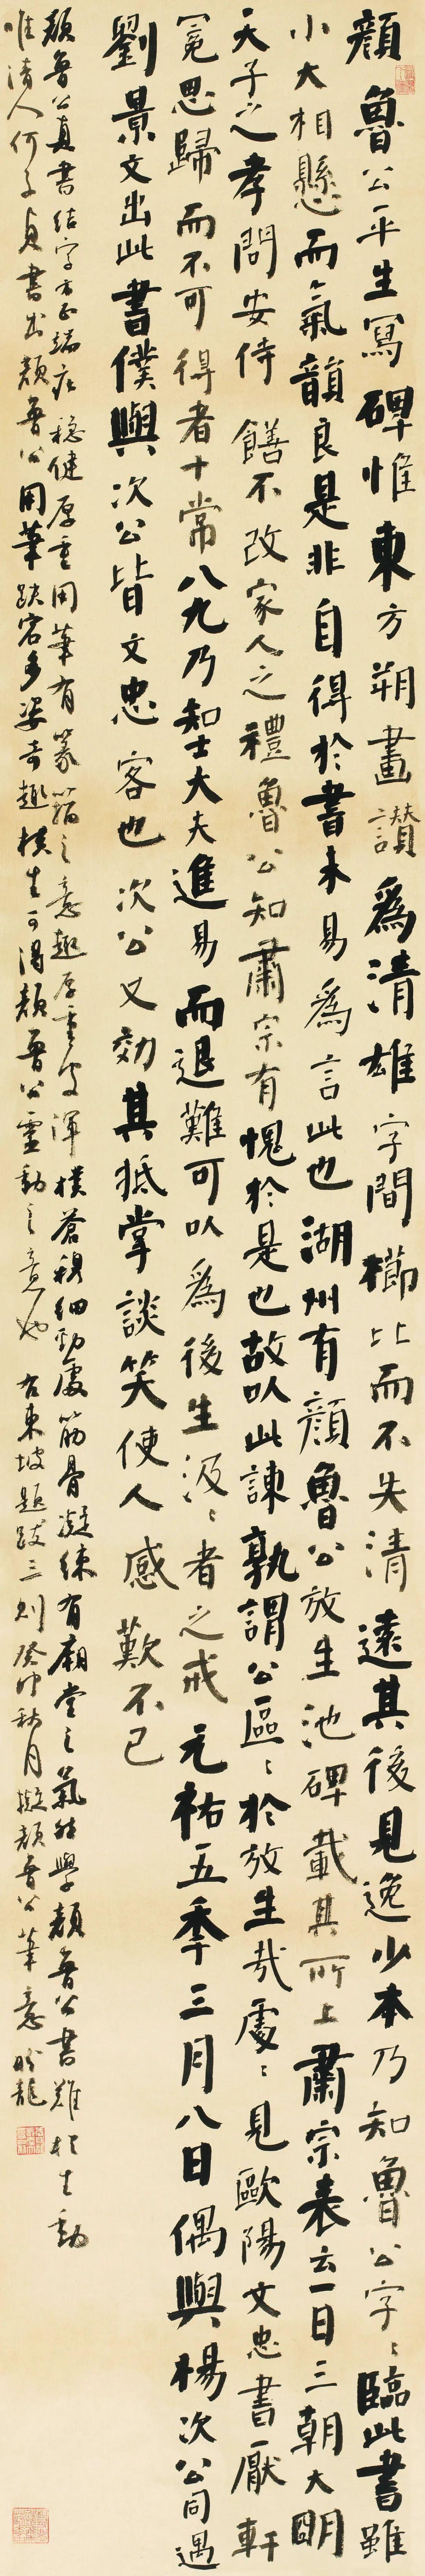 顏魯公平生寫碑惟東方朔畫讃為清雄字間櫛比而不失清遠其後見逸少本乃知魯公字〻臨此書雖
小大相懸而氣韻良是非自得於書未易為言此也湖州有顏魯公放生池碑載其所上肅宗表云一日三朝大明
天子之孝問安侍饍不改家人之禮魯公知肅宗有愧於是也故以此諫孰謂公區〻於放生哉處〻見歐陽文忠書厭軒
冕思歸而不可得者十常八九乃知士大夫進易而退難可以為後生汲〻者之戒元祐五季三月八日偶與楊次公同遇
劉景文出此書僕與次公皆文忠客也次公又効其抵掌談笑使人感歎不已
顏魯公真書結字方正端莊穩健厚重用筆有篆籀之意趣厚重渾樸蒼穆細勁處筋骨凝練有廟堂之氣然學顏魯公書難於生動
唯清人何子貞書出顏魯公用筆跌宕多姿奇趣橫生可得顏魯公靈動之意也右東坡題跋三則癸卯秋月擬顏魯公筆意